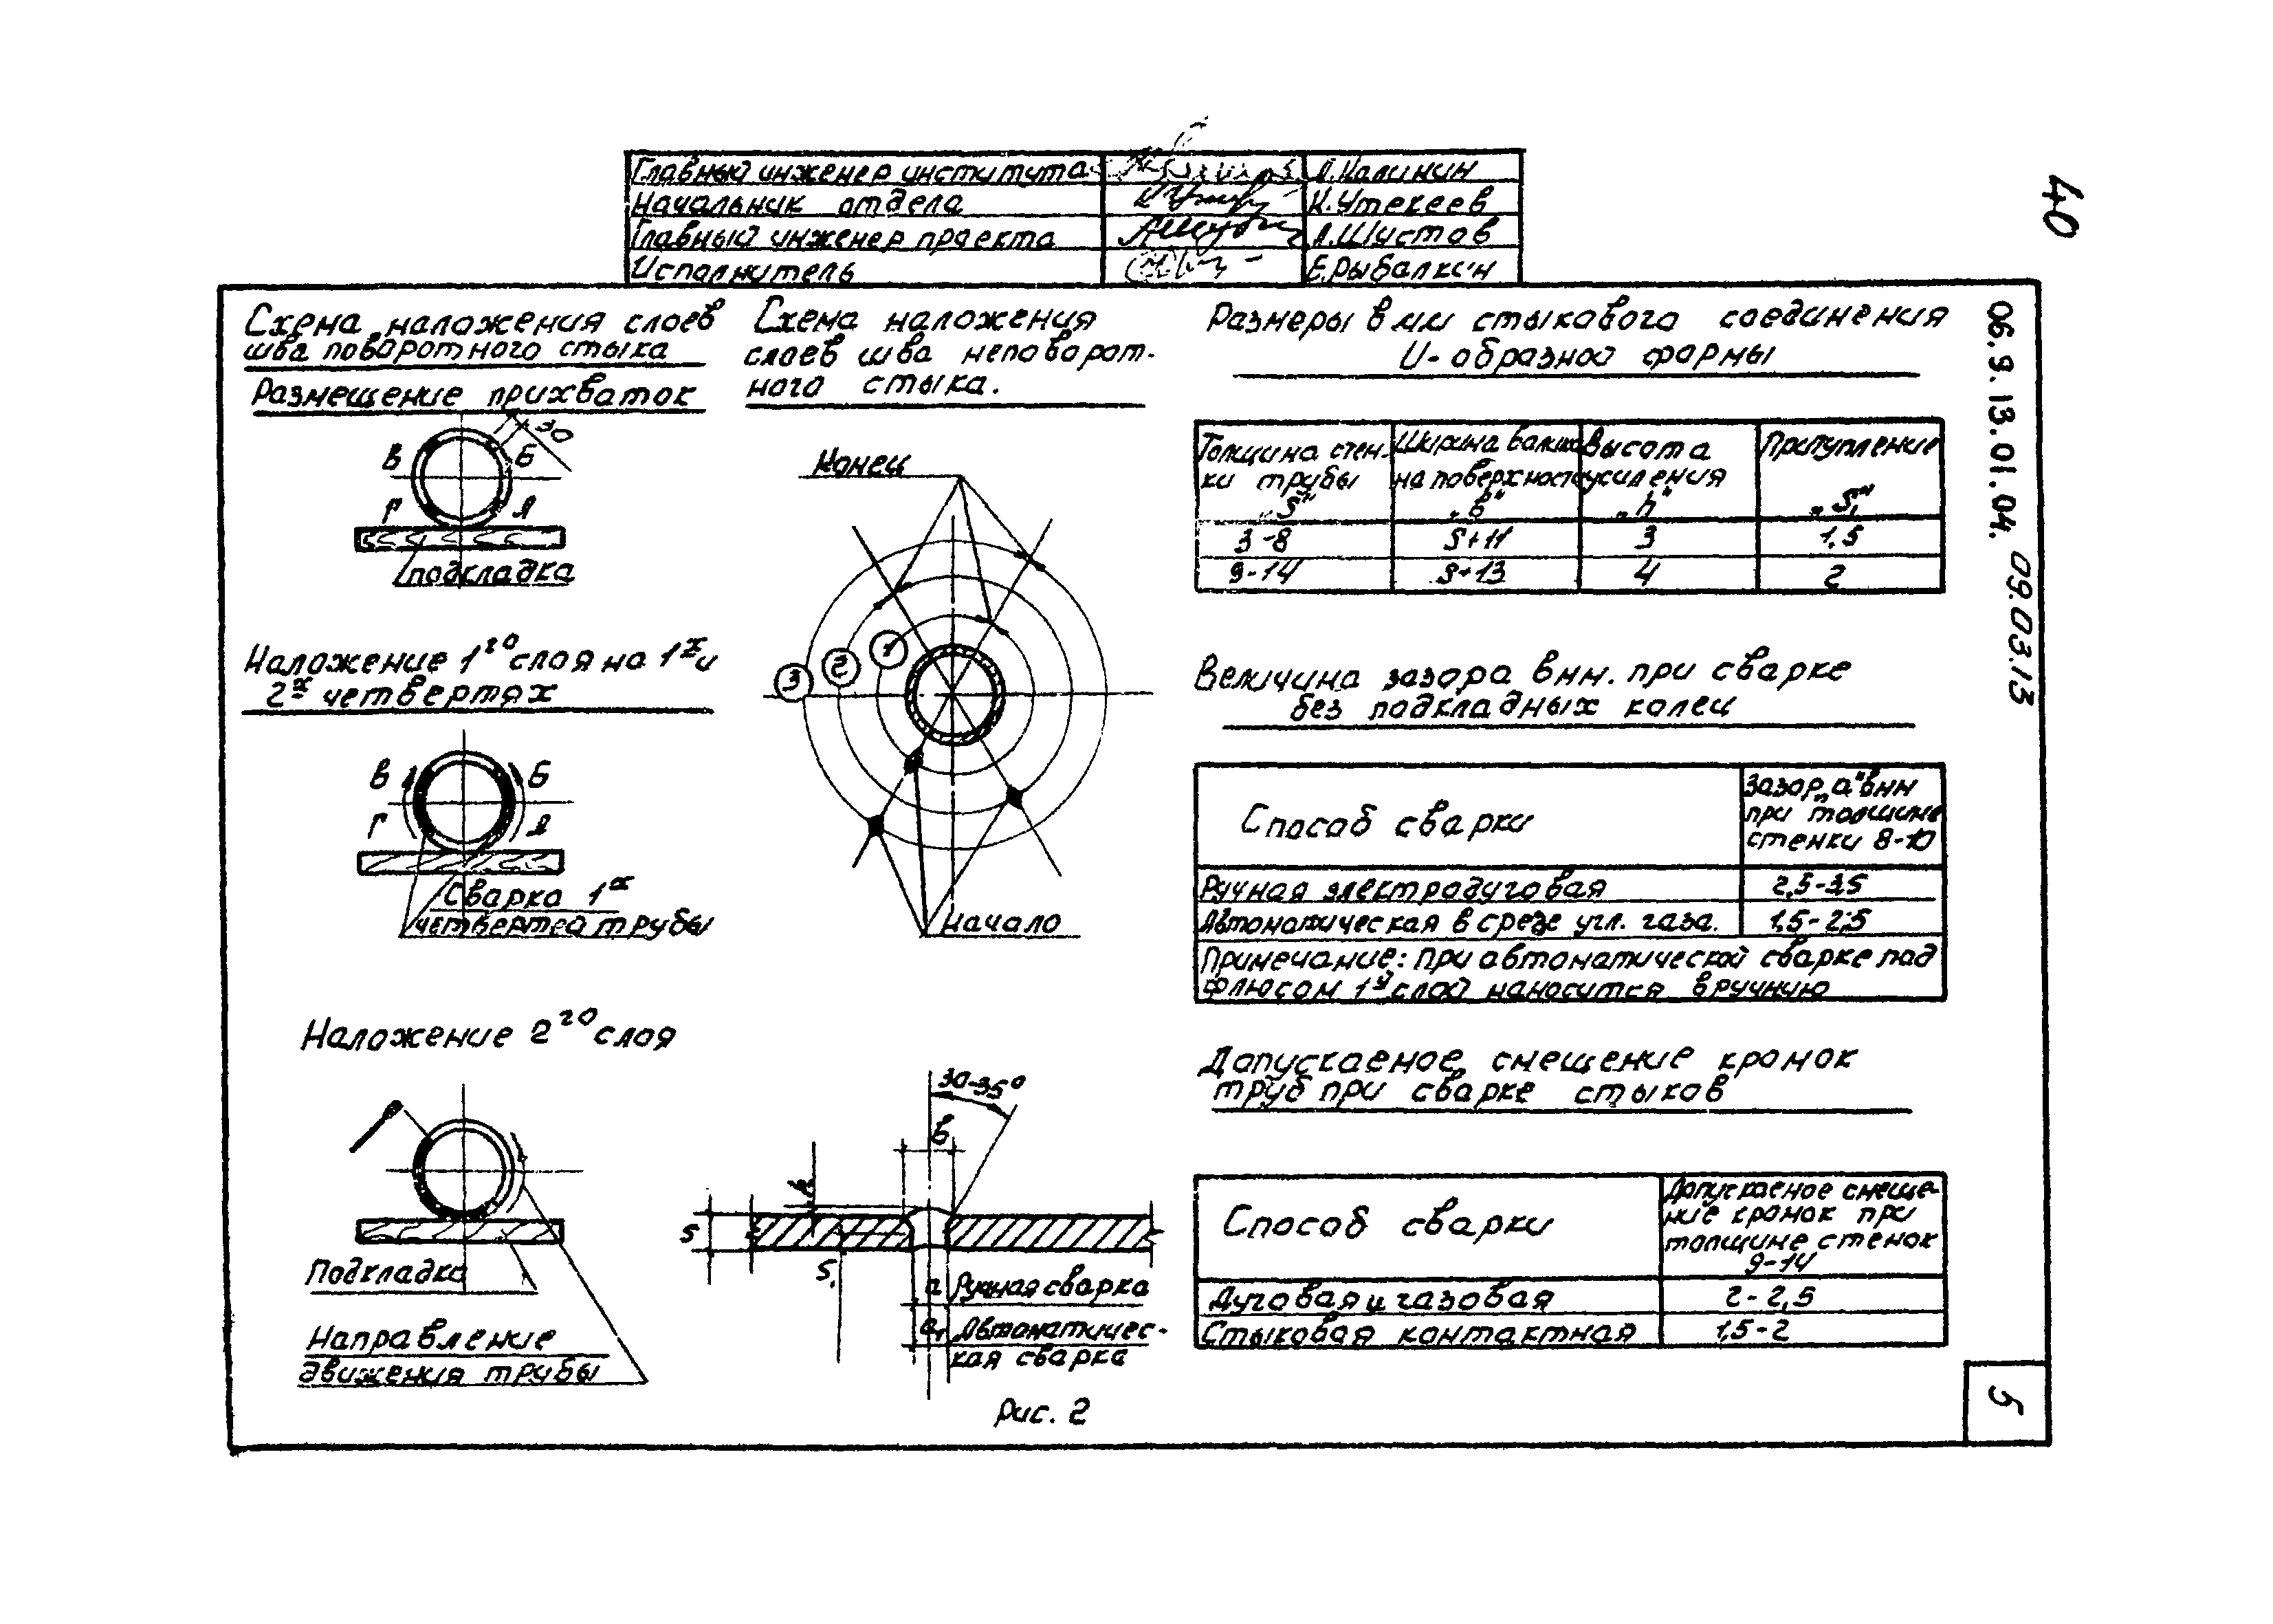 40
06.9.13.01.04.
09.03.13
Главный инженер института
Л.Калинин
Начальник отдела
К.Утекеев
Главный инженер проекта
А.Шустов
Исполнитель
Е.Рыбалкин
Схема наложения слоев
шва поворотного стыка
Размещение прихваток
30
В
Б
Г
А
подкладка
Наложение 1го слоя на 1х и
2х четвертях
В
Б
Г
А
Сварка 1х
четвертей трубы
Наложение 2го слоя
Подкладка
Направление
движения трубы
Схема наложения
слоев шва неповорот-
ного стыка.
Конец
1
2
3
Начало
30-35°
в
h
S
S₁
а Ручная сварка
а₁ Автоматичес-
кая сварка
Рис. 2
Размеры в мм стыкового соединения
U-образной формы
Толщина стен-
ки трубы
„S“
Ширина валика
на поверхности
„в“
Высота
усиления
„h“
Притупление
„S₁“
3-8
S+11
3
1,5
9-14
S+13
4
2
Величина зазора в мм. при сварке
без подкладных колец
Способ сварки
Зазор „а“ в мм
при толщине
стенки 8-10
Ручная электродуговая
2,5-3,5
Автоматическая в среде угл. газа.
1,5-2,5
Примечание: При автоматической сварке под
флюсом 1й слой наносится вручную
Допускаемое смещение кромок
труб при сварке стыков
Способ сварки
Допускаемое смеще-
ние кромок при
толщине стенок
9-14
Дуговая и газовая
2-2,5
Стыковая контактная
1,5-2
5